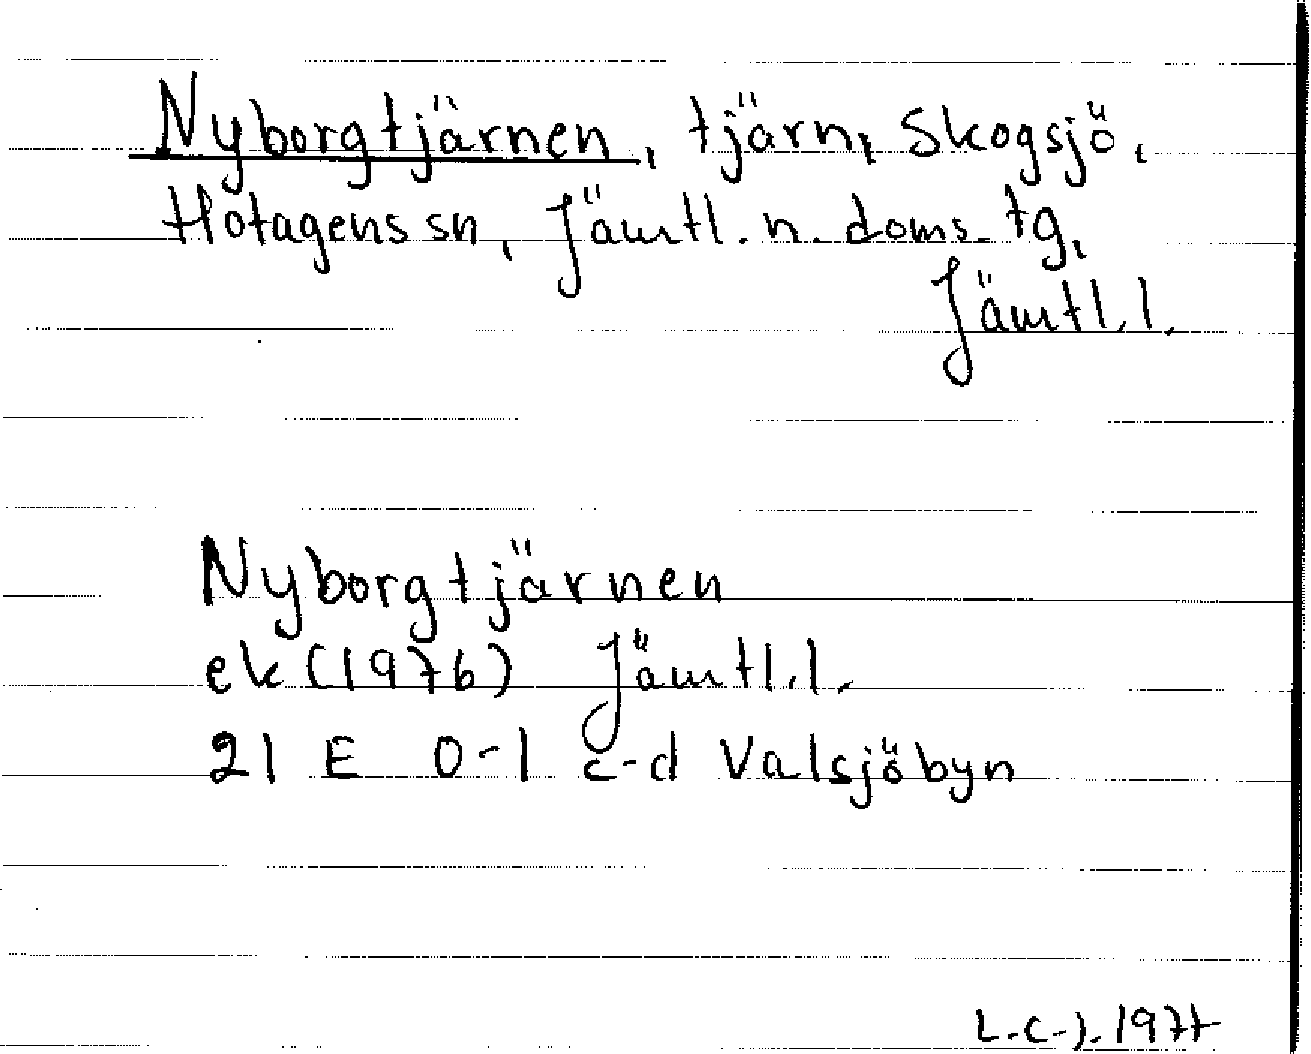 Nyborgtjärnen, tjärn, Skogsjö,
Hotagens sn, Jämtl. n. doms. tg,
Jämtl.l.
Nyborgtjärnen
ek (1976) Jämtl.l.
21 E 0-1 c-d Valsjöbyn
L.C-J. 1977